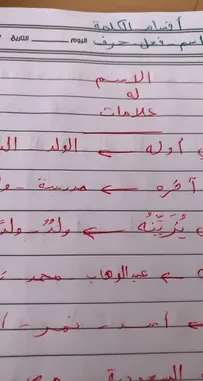 أقسام الكلمة
اسم - فعل - حرف
اليوم
التاريخ
الاسم
له
علامات
أوله ← الولد
آخره ← مدرسة -
يُزَيِّنُهُ ← ولدٌ - ولدً
← عبدالوهاب محمد
← أسد - نمر -
السعودية